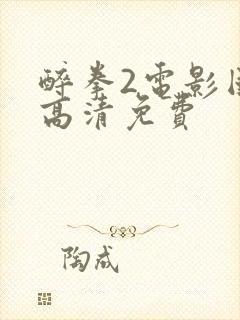 醉拳2電影國
高清免費
陶成